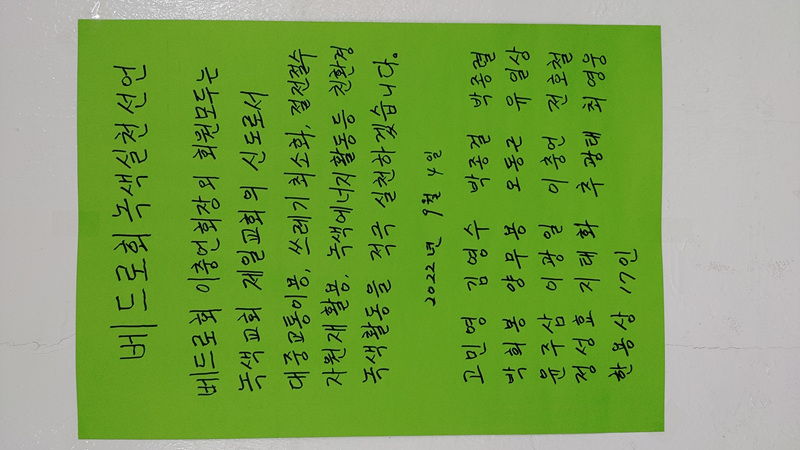 베드로회 녹색실천 선언
베드로회 이충언회장외 회원모두는
녹색교회 제일교회의 신도로서
대중교통이용, 쓰레기 최소화, 절전절수
자원재활용, 녹색에너지활동등 친환경
녹색활동을 적극 실천하겠습니다.
2022년 9월 4일
고민영 김영수 박종걸 박종렬
박희봉 양무용 오동근 유일상
윤주삼 이광일 이충언 전호철
정성호 지태화 주광태 최영웅
한용상 17인